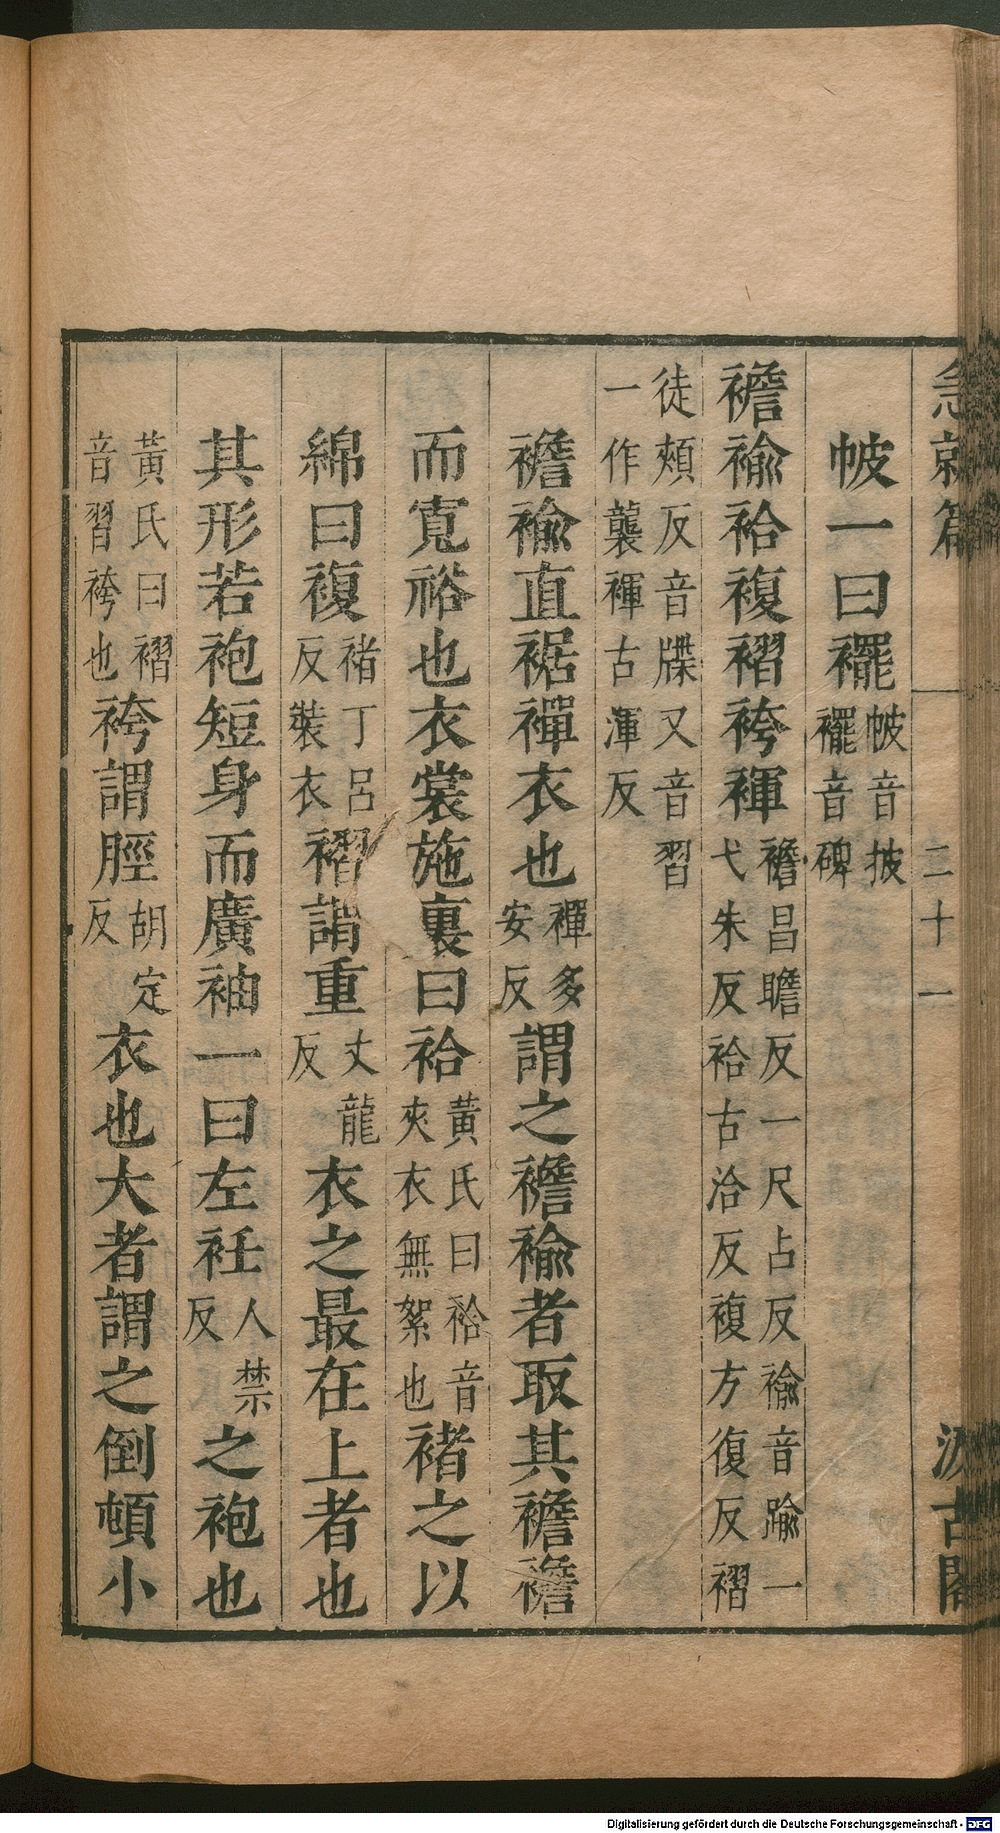 急就篇 二十一 汲古閣
帔一曰襬帔音披襬音碑
襜褕袷複褶袴褌襜昌瞻反一尺占反褕音踰一弋朱反袷古洽反複方復反褶
徒頰反音牒又音習一作襲褌古渾反
襜褕直裾襌衣也襌多安反謂之襜褕者取其襜襜
而寬裕也衣裳施裏曰袷黃氏曰袷音夾衣無絮也褚之以
綿曰複褚丁呂反裝衣褶謂重丈龍反衣之最在上者也
其形若袍短身而廣袖一曰左衽人禁反之袍也
黃氏曰褶音習袴也袴謂脛胡定反衣也大者謂之倒頓小
Digitalisierung gefördert durch die Deutsche Forschungsgemeinschaft - DFG